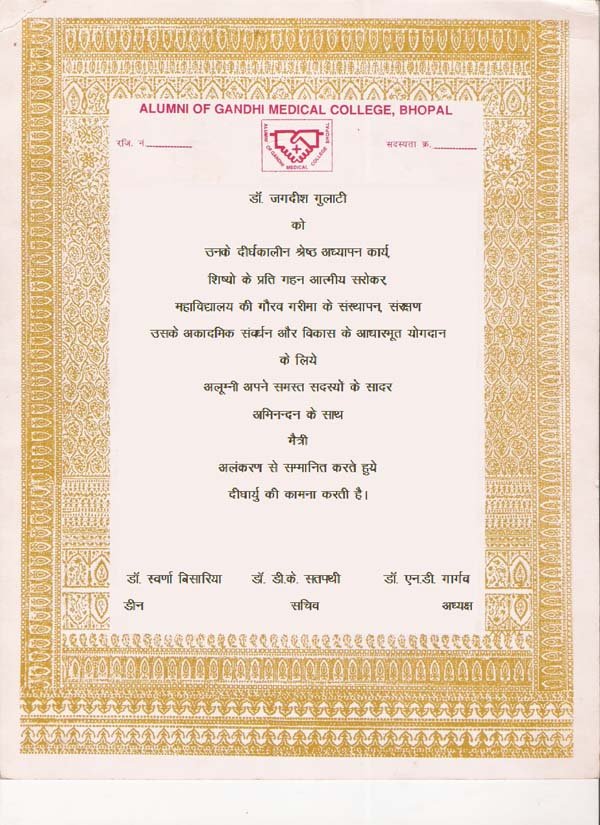 ALUMNI OF GANDHI MEDICAL COLLEGE, BHOPAL
रजि. नं.
ALUMNI OF GANDHI MEDICAL COLLEGE BHOPAL
सदस्यता क्र.
डॉ. जगदीश गुलाटी
को
उनके दीर्घकालीन श्रेष्ठ अध्यापन कार्य,
शिष्यो के प्रति गहन आत्मीय सरोकर,
महाविद्यालय की गौरव गरीमा के संस्थापन, संरक्षण
उसके अकादमिक संवर्धन और विकास के आधारमूत योगदान
के लिये
अलूम्नी अपने समस्त सदस्यों के सादर
अमिनन्दन के साथ
मैत्री
अलंकरण से सम्मानित करते हुये
दीघार्यु की कामना करती है।
डॉ. स्वर्णा बिसारिया डॉ. डी.के. सतपथी डॉ. एन.डी. गार्गव
डीन सचिव अध्यक्ष